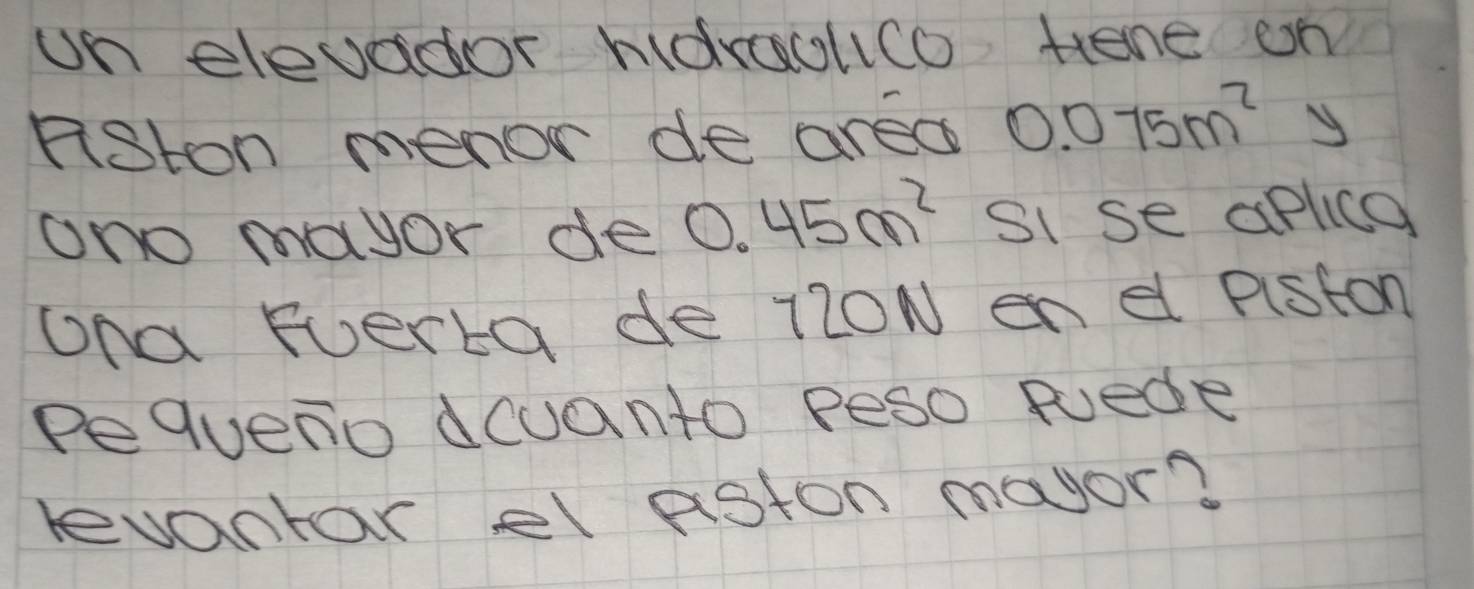 un elevador hidraulico tiene un
Piston menor de area 0.075m² y
uno mayor de 0.45m² si se aplica
una Fuerza de 120N en el Piston
Pequeño ¿cuanto Peso Puede
levantar el Piston mayor?